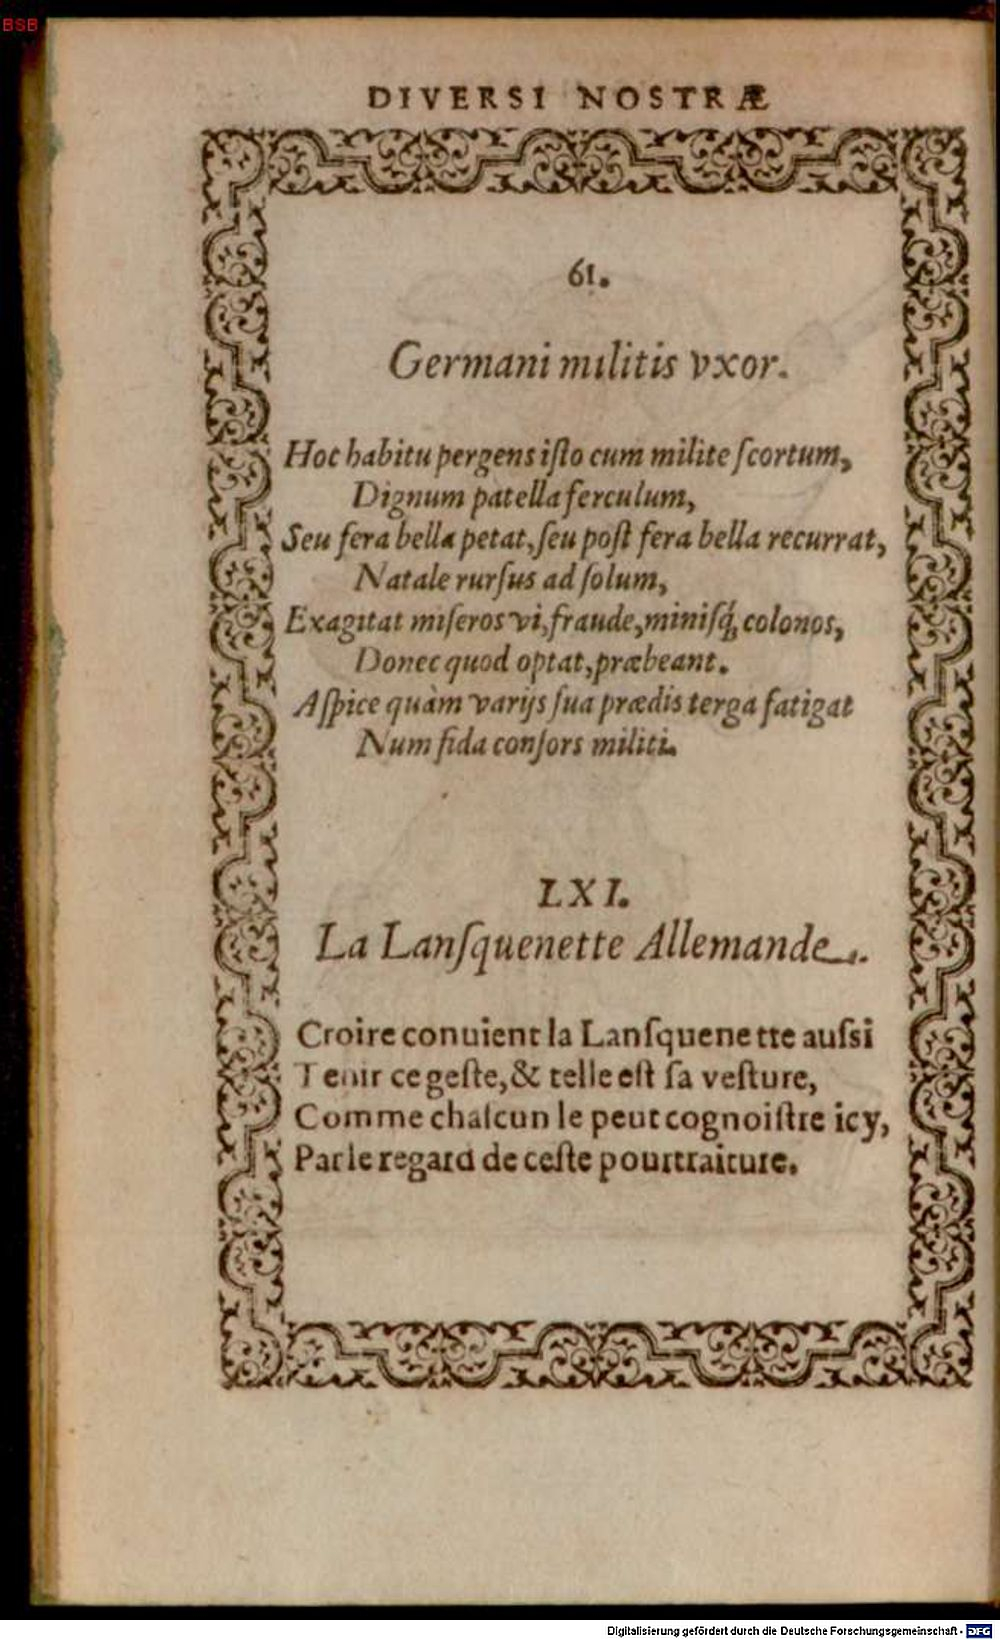 BSB
DIVERSI NOSTRÆ
61.
Germani militis vxor.
Hoc habitu pergens iſto cum milite ſcortum,
Dignum patella ferculum,
Seu fera bella petat, ſeu poſt fera bella recurrat,
Natale rurſus ad ſolum,
Exagitat miſeros vi, fraude, miniſq́, colonos,
Donec quod optat, præbeant.
Aſpice quàm varijs ſua prædis terga fatigat
Num fida conſors militi.
LXI.
La Lanſquenette Allemande.
Croire conuient la Lanſquenette auſsi
Tenir ce geſte, & telle eſt ſa veſture,
Comme chaſcun le peut cognoiſtre icy,
Par le regard de ceſte pourtraiture.
Digitalisierung gefördert durch die Deutsche Forschungsgemeinschaft - DFG